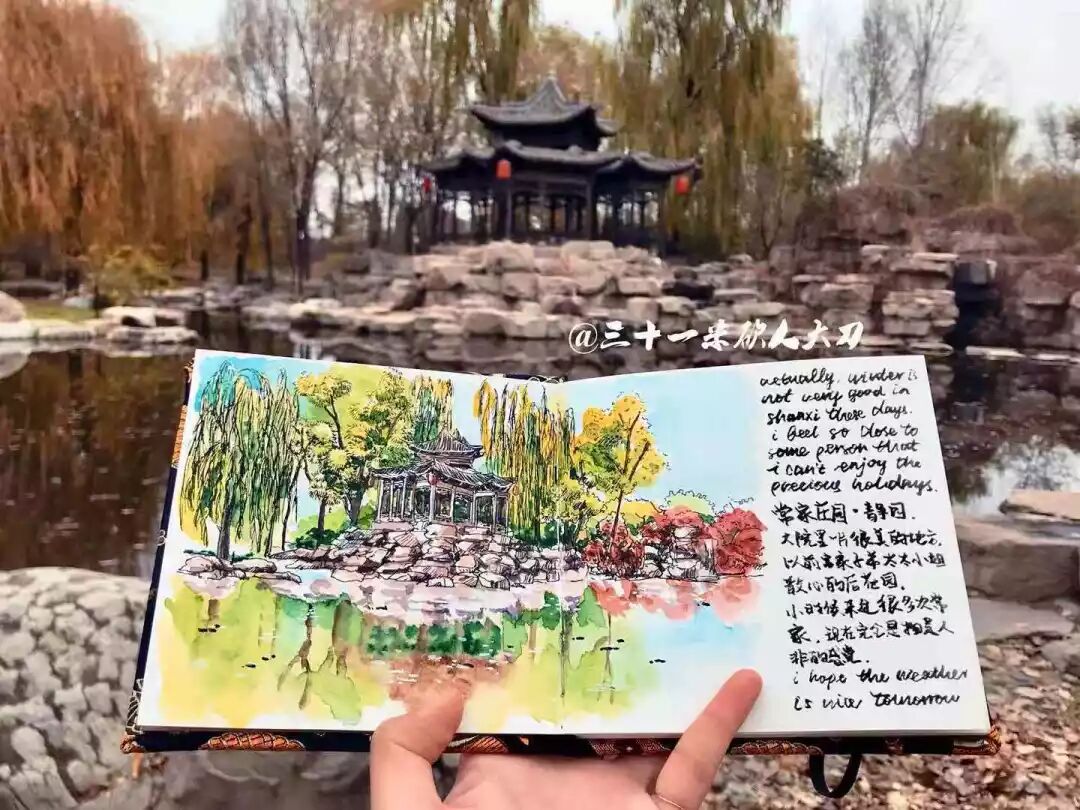 @三十一
actually, winter is
not very good in
shanxi these days.
i feel so close to
some person that
i can't enjoy the
precious holidays.
常家庄园·静园.
大院里一片很美的地方,
以前常家子弟太太小姐
散心的后花园.
小时候来过很多次常
家,现在完全是物是人
非的感觉.
i hope the weather
is nice tomorrow